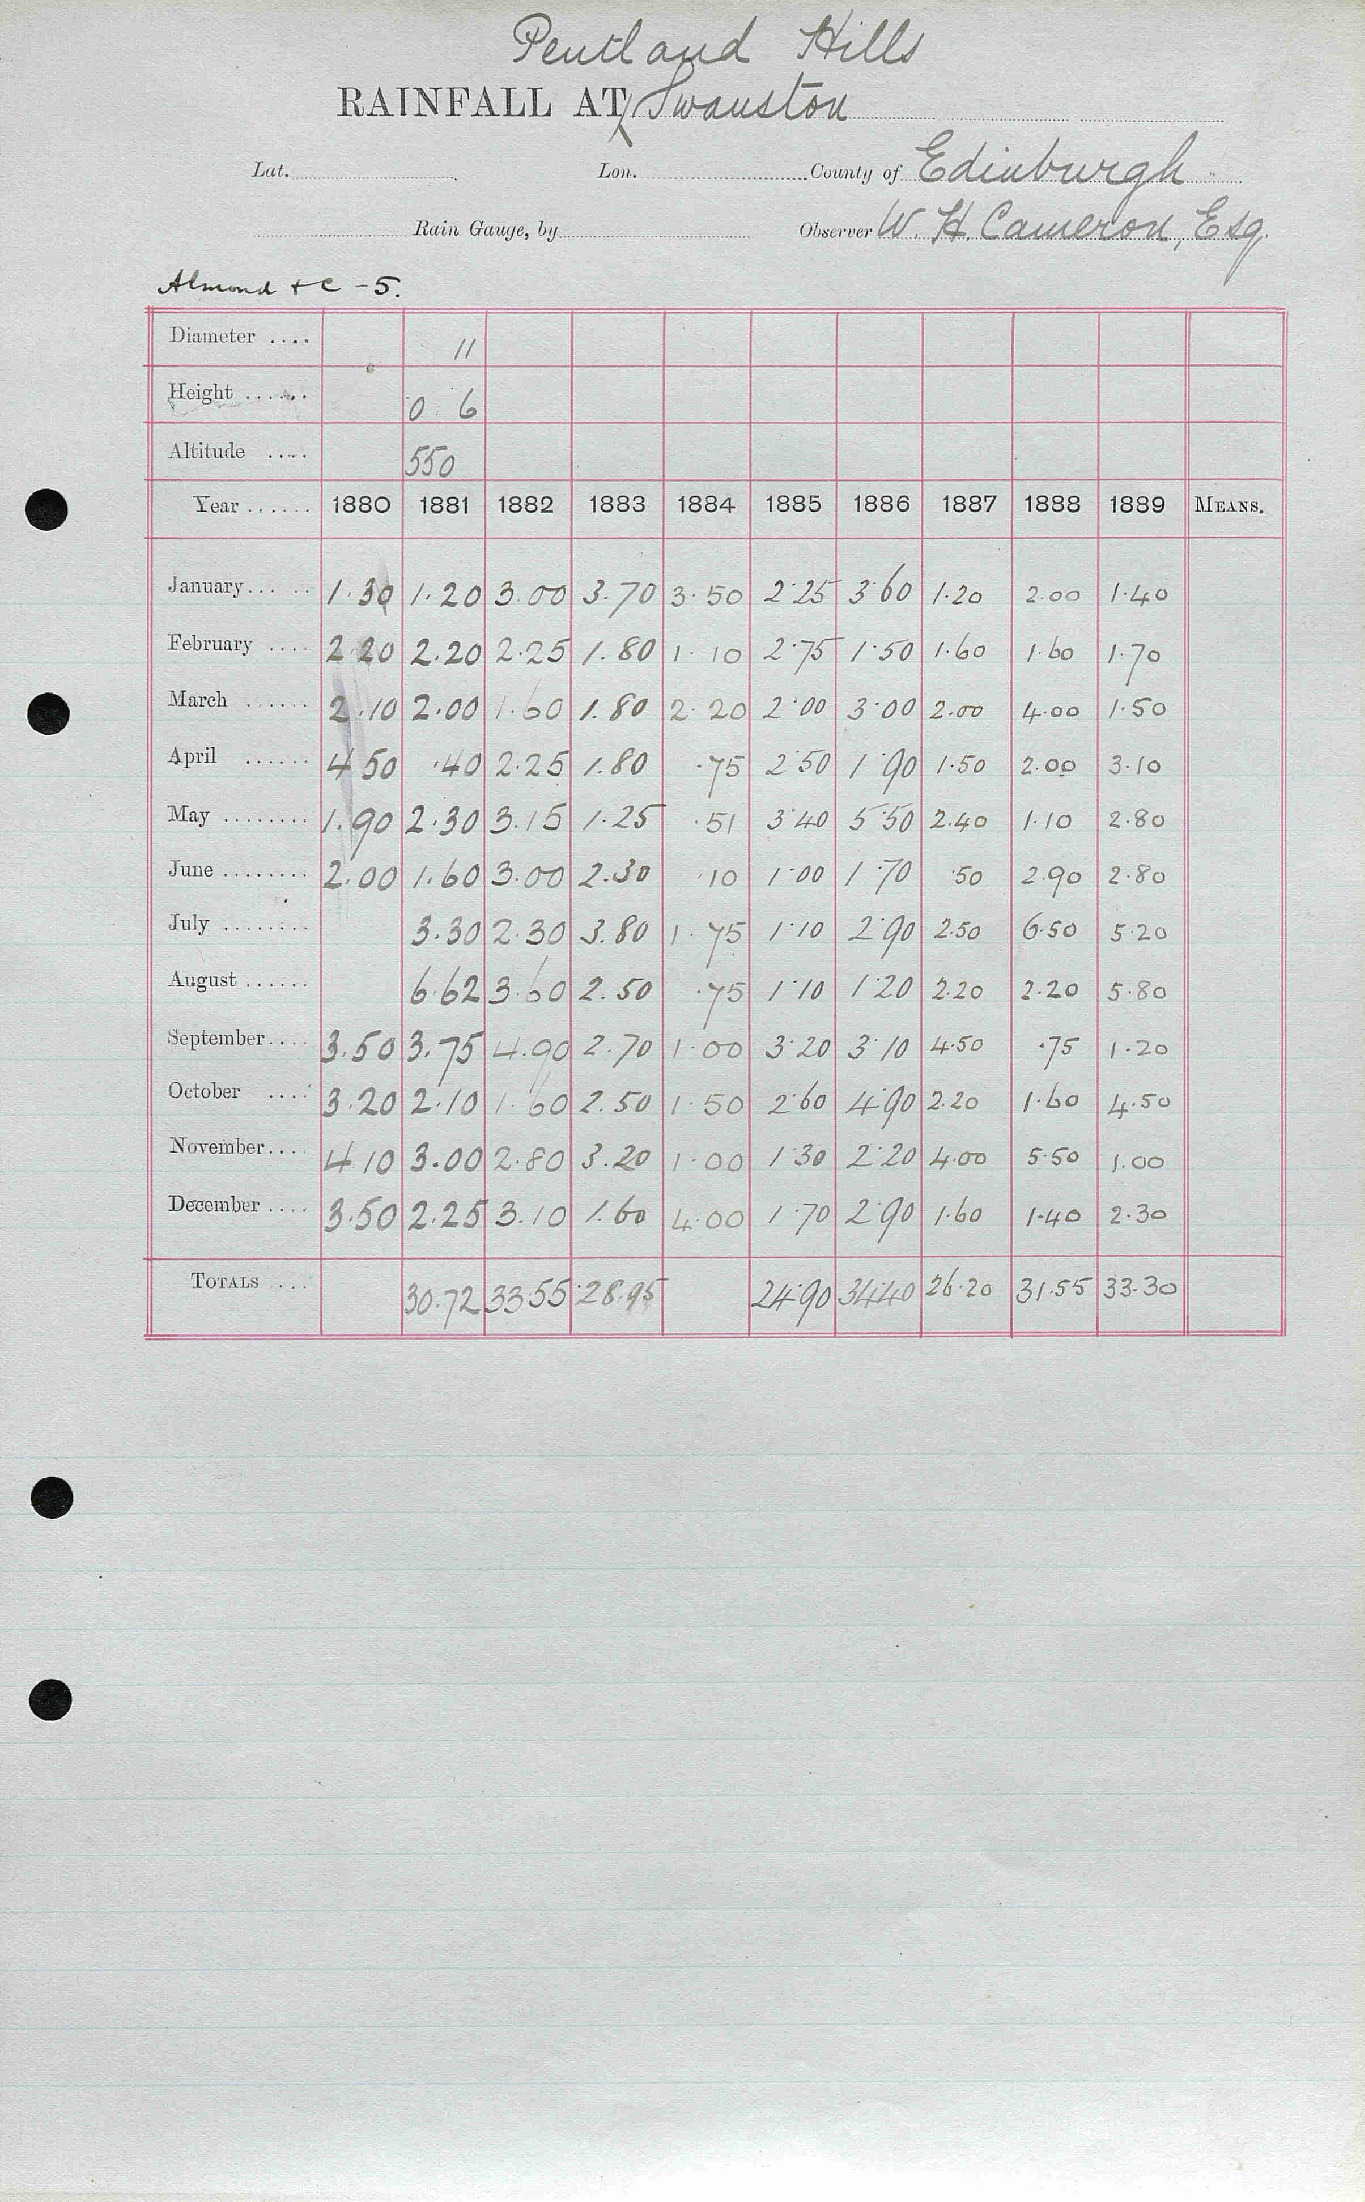 Pentland Hills
RAINFALL AT Swanston
Lat. Lon. County of Edinburgh
Rain Gauge, by Observer W. H. Cameron, Esq.
Almond + C - 5.
Diameter .... 11
Height ...... 0 6
Altitude .... 550
Year ...... 1880 1881 1882 1883 1884 1885 1886 1887 1888 1889 MEANS.
January ...... 1.30 1.20 3.00 3.70 3.50 2.25 3.60 1.20 2.00 1.40
February .... 2.20 2.20 2.25 1.80 1.10 2.75 1.50 1.60 1.60 1.70
March ...... 2.10 2.00 1.60 1.80 2.20 2.00 3.00 2.00 4.00 1.50
April ...... 4.50 .40 2.25 1.80 .75 2.50 1.90 1.50 2.00 3.10
May ........ 1.90 2.30 3.15 1.25 .51 3.40 5.50 2.40 1.10 2.80
June ........ 2.00 1.60 3.00 2.30 .10 1.00 1.70 .50 2.90 2.80
July ........ 3.30 2.30 3.80 1.75 1.10 2.90 2.50 6.50 5.20
August ...... 6.62 3.60 2.50 .75 1.10 1.20 2.20 2.20 5.80
September.... 3.50 3.75 4.90 2.70 1.00 3.20 3.10 4.50 .75 1.20
October .... 3.20 2.10 1.60 2.50 1.50 2.60 4.90 2.20 1.60 4.50
November.... 4.10 3.00 2.80 3.20 1.00 1.30 2.20 4.00 5.50 1.00
December .... 3.50 2.25 3.10 1.60 4.00 1.70 2.90 1.60 1.40 2.30
TOTALS .... 30.72 33.55 28.95 24.90 34.40 26.20 31.55 33.30